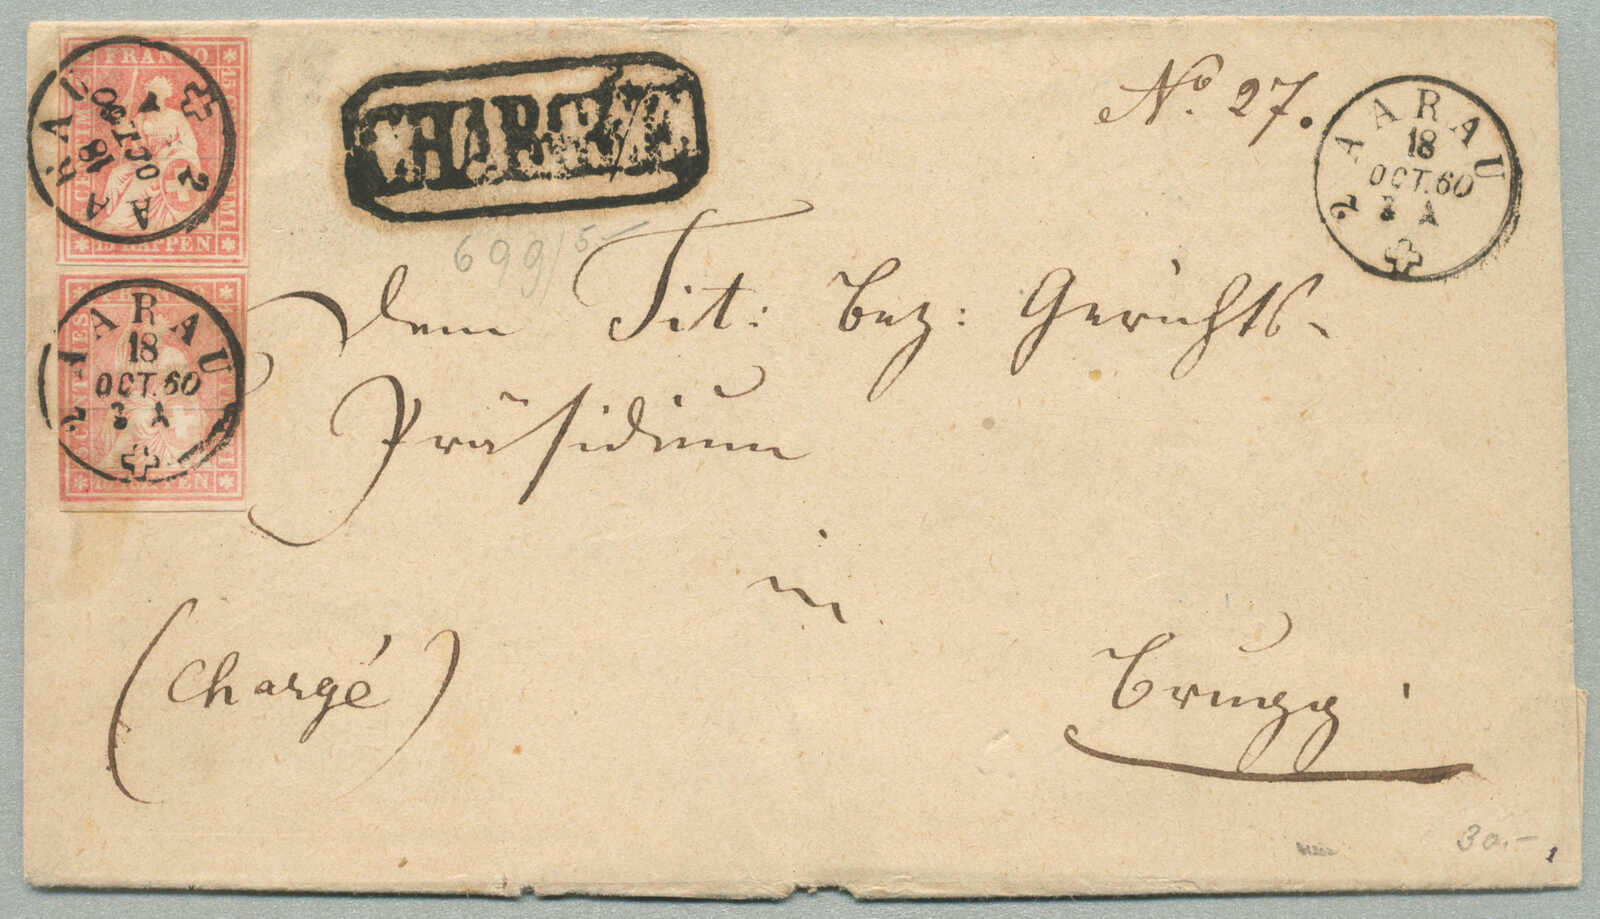 FRANCO
15 RAPPEN
AARAU
18
OCT. 60
2
CHARGÉ
No. 27.
AARAU
18
OCT. 60
3 A
2
699/5-
Dem Tit: Bez: Gerichts-
Präsidium
in
Brugg.
(Chargé)
AARAU
18
OCT. 60
3 A
2
15 RAPPEN
30.-